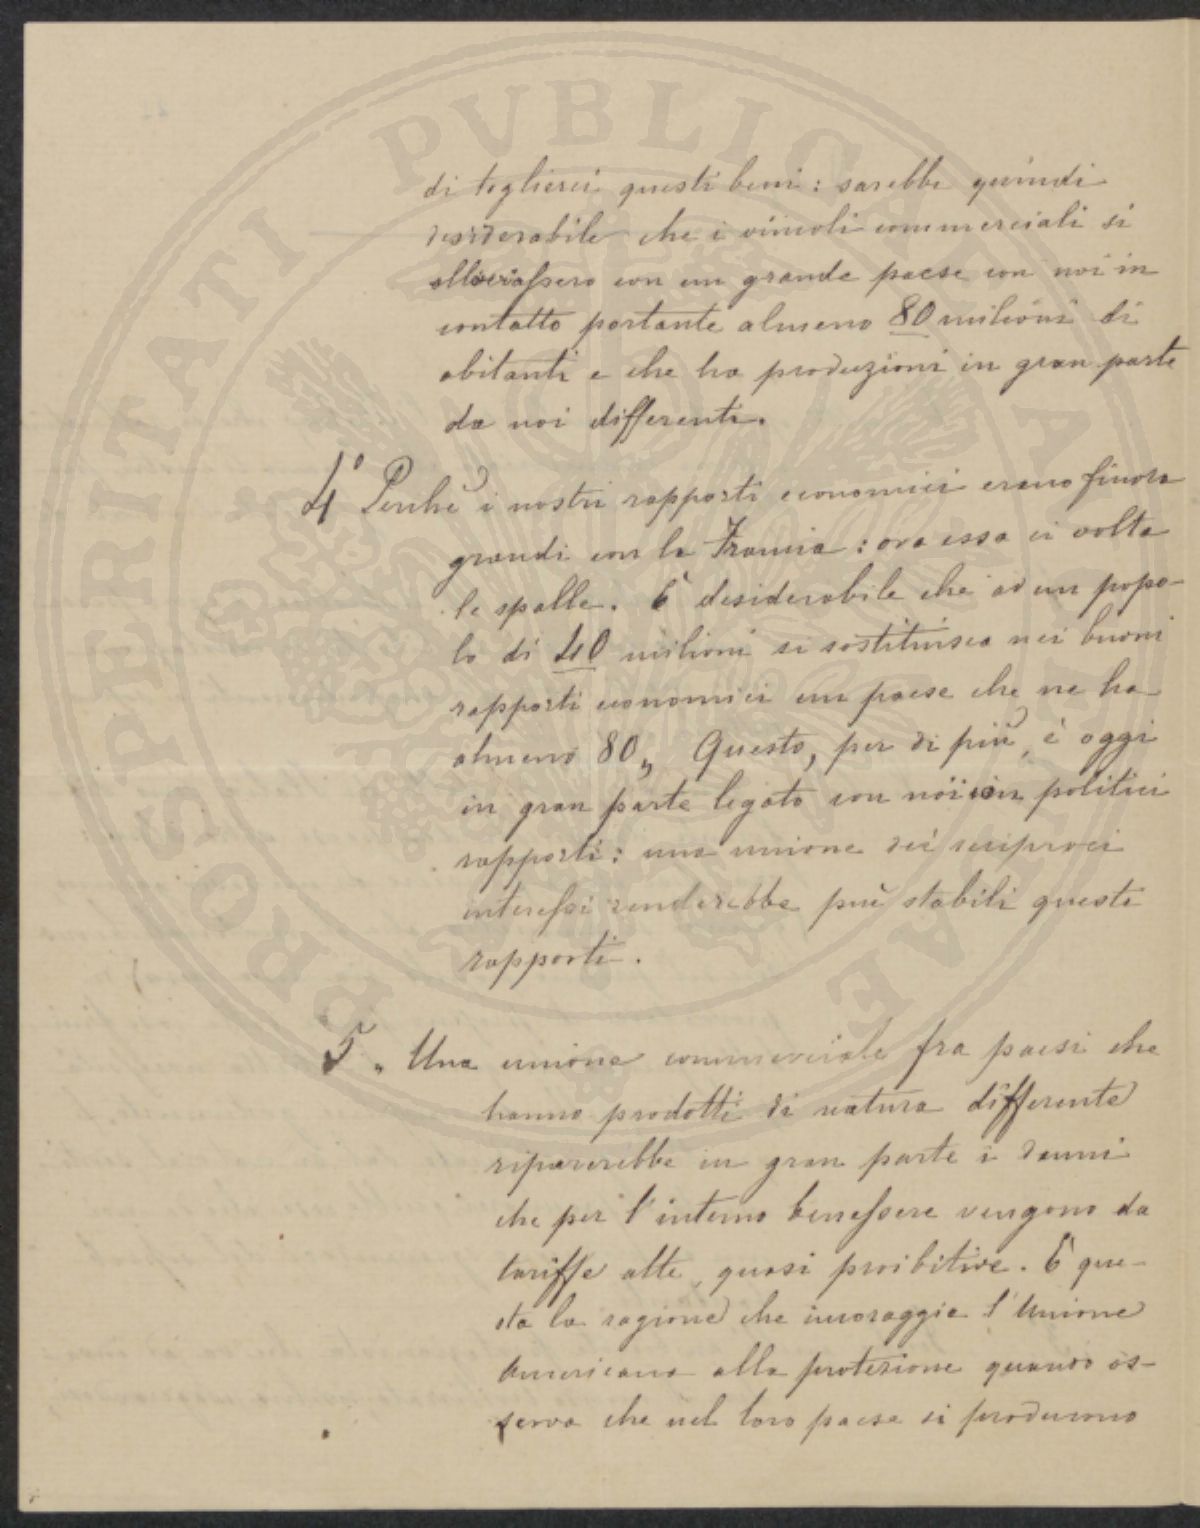 di toglierci questi beni: sarebbe quindi
desiderabile che i vincoli commerciali si
allacciassero con un grande paese con noi in
contatto portante almeno 80 milioni di
abitanti e che ha produzioni in gran parte
da noi differenti.
4° Perchè i nostri rapporti economici erano finora
grandi con la Francia: ora essa ci volta
le spalle. È desiderabile che ad un popo-
lo di 40 milioni si sostituisca nei buoni
rapporti economici un paese che ne ha
almeno 80„ Questo, per di più, è oggi
in gran parte legato con noi in politici
rapporti: una unione dei reciproci
interessi renderebbe più stabili questi
rapporti.
5„ Una unione commerciale fra paesi che
hanno prodotti di natura differente
riparerebbe in gran parte i danni
che per l'interno benessere vengono da
tariffe alte, quasi proibitive. È que-
sta la ragione che incoraggia l'Unione
Americana alla protezione quando os-
serva che nel loro paese si producono
PROSPERITATI PVBLICAE AVGENDAE